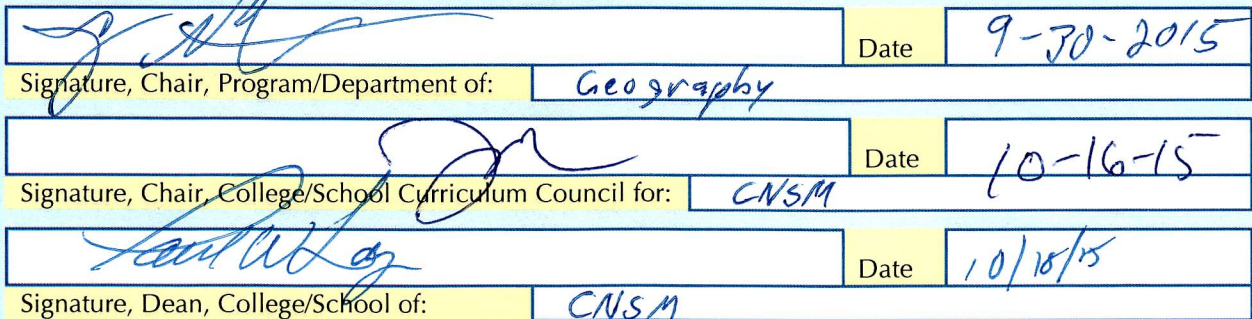 Date 9-30-2015
Signature, Chair, Program/Department of: Geography
Date 10-16-15
Signature, Chair, College/School Curriculum Council for: CNSM
Date 10/18/15
Signature, Dean, College/School of: CNSM